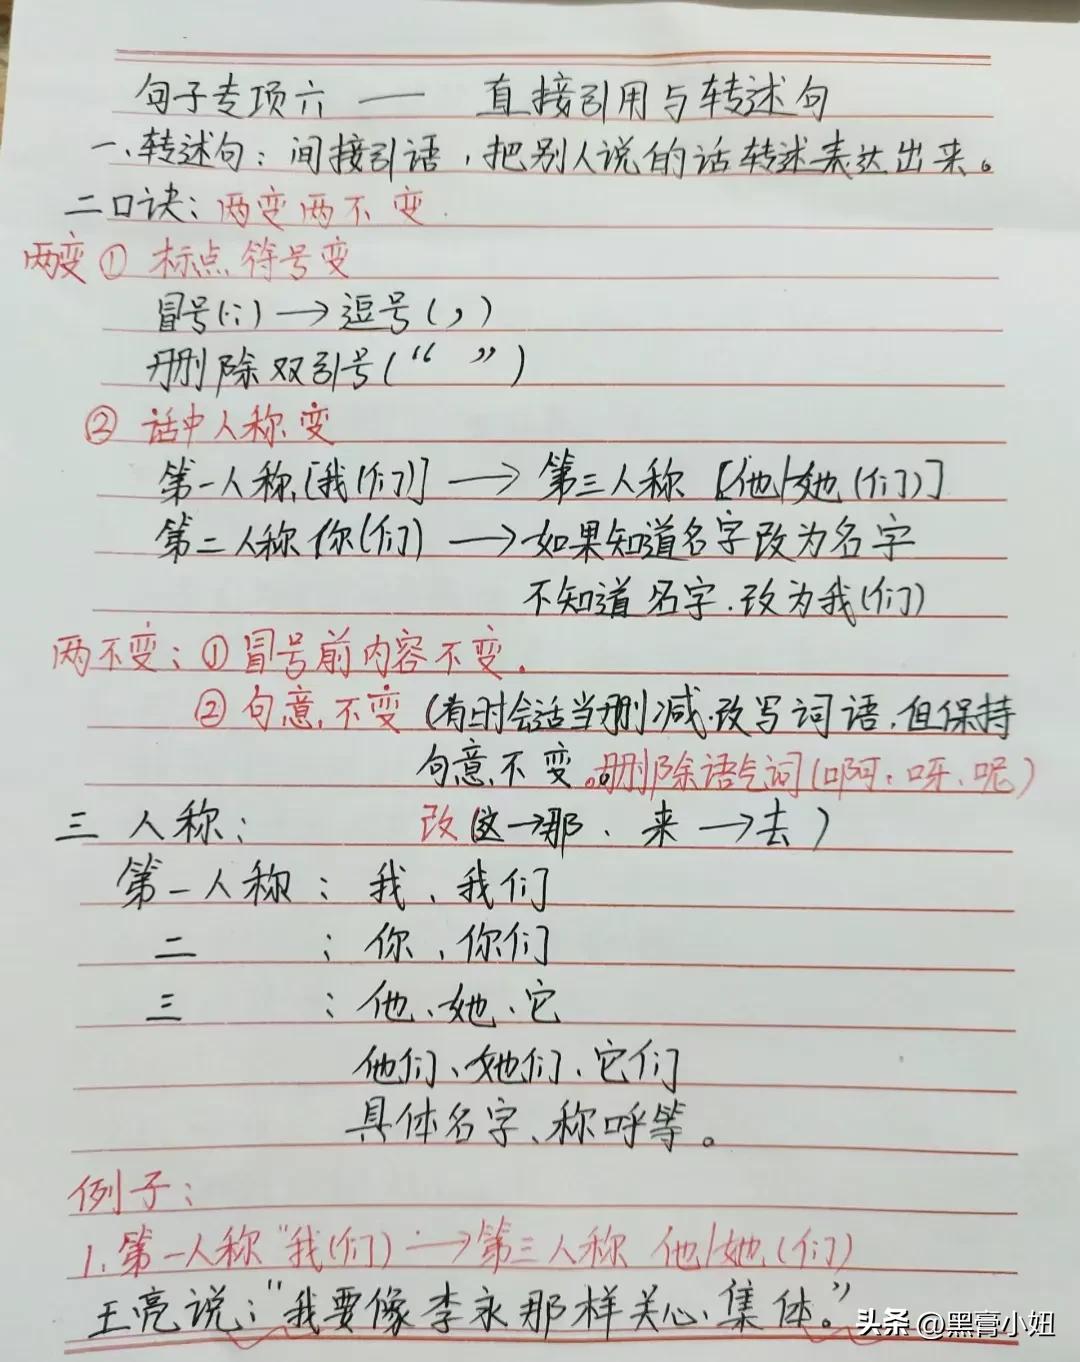 句子专项六 — 直接引用与转述句
一、转述句：间接引语，把别人说的话转述表达出来。
二口诀：两变两不变.
两变① 标点符号变
冒号(：)→逗号(，)
删除双引号(“ ”)
② 话中人称变
第一人称[我(们)] → 第三人称[他/她(们)]
第二人称你(们) → 如果知道名字改为名字
不知道名字.改为我(们)
两不变：①冒号前内容不变.
②句意不变(有时会适当删减.改写词语.但保持
句意不变。删除语气词(啊、呀、呢)
三 人称： 改(这→那、来→去)
第一人称：我、我们
二 ：你、你们
三 ：他、她、它
他们、她们、它们
具体名字、称呼等。
例子：
1.第一人称“我(们) → 第三人称 他/她(们)
王亮说：“我要像李永那样关心集体。”
头条 @黑膏小妞